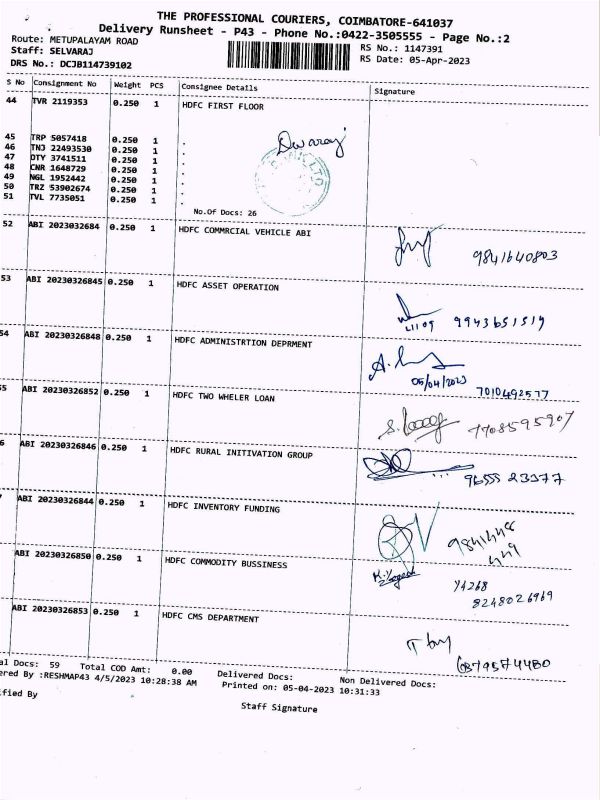 THE PROFESSIONAL COURIERS, COIMBATORE-641037
Delivery Runsheet - P43 - Phone No.:0422-3505555 - Page No.:2
Route: METUPALAYAM ROAD RS No.: 1147391
Staff: SELVARAJ RS Date: 05-Apr-2023
DRS No.: DCJB114739102
S No Consignment No Weight PCS Consignee Details Signature
44 TVR 2119353 0.250 1 HDFC FIRST FLOOR
45 TRP 5057418 0.250 1 .
46 TNJ 22493530 0.250 1 .
47 DTY 3741511 0.250 1 .
48 CNR 1648729 0.250 1 .
49 NGL 1952442 0.250 1 .
50 TRZ 53902674 0.250 1 .
51 TVL 7735051 0.250 1 .
No.Of Docs: 26
52 ABI 2023032684 0.250 1 HDFC COMMRCIAL VEHICLE ABI
9841640803
53 ABI 20230326845 0.250 1 HDFC ASSET OPERATION
9943651519
54 ABI 20230326848 0.250 1 HDFC ADMINISTRTION DEPRMENT
05/04/2023
7010492577
55 ABI 20230326852 0.250 1 HDFC TWO WHELER LOAN
7708595907
6 ABI 20230326846 0.250 1 HDFC RURAL INITIVATION GROUP
96555 23377
ABI 20230326844 0.250 1 HDFC INVENTORY FUNDING
ABI 20230326850 0.250 1 HDFC COMMODITY BUSSINESS
8248026969
ABI 20230326853 0.250 1 HDFC CMS DEPARTMENT
6379574480
al Docs: 59 Total COD Amt: 0.00 Delivered Docs: Non Delivered Docs:
ered By :RESHMAP43 4/5/2023 10:28:38 AM Printed on: 05-04-2023 10:31:33
ified By Staff Signature